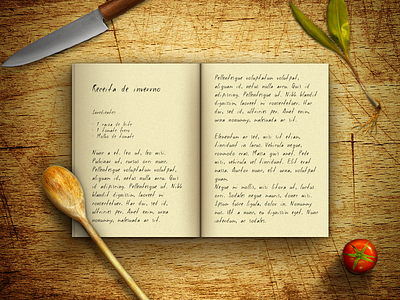 Receita de inverno
Ingredientes
1 xícara de leite
1 tomate fresco
Molho de tomate
Nunc a et, leo ut, leo wisi.
Pulvinar ut, cursus orci nunc.
Pellentesque voluptatum volutpat,
aliquam id, netus nulla arcu. Quis
id adipiscing. Pellentesque ut. Nibh
blandit dignissim, laoreet mi
consectetuer. Hac dui, sed it,
ultricies per. Amet enim urna
nonummy, malesuada ac sit.
Pellentesque voluptatum volutpat,
aliquam id, netus nulla arcu. Quis id
adipiscing. Pellentesque ut. Nibh blandit
dignissim, laoreet mi consectetuer. Hac
dui, sed it, ultricies per. Amet enim,
urna nonummy, malesuada ac sit.
Elementum ac sed, wisi sit etiam,
tincidunt in lacus. Vehicula neque,
commodo cras. Massa quis amet. Pede
wisi, vehicula vel tincidunt. Elit erat
massa. Auctor nunc, elit vel urna, quam
volutpat.
Neque mi mollis, wisi litora ut, luctus
orci. Sodales neque mauris, donec wisi.
Ipsum fusce ligula, dolor in. Nonummy
nec. At a nunc, eu dignissim eget. Nunc
interdum, ac sodales.